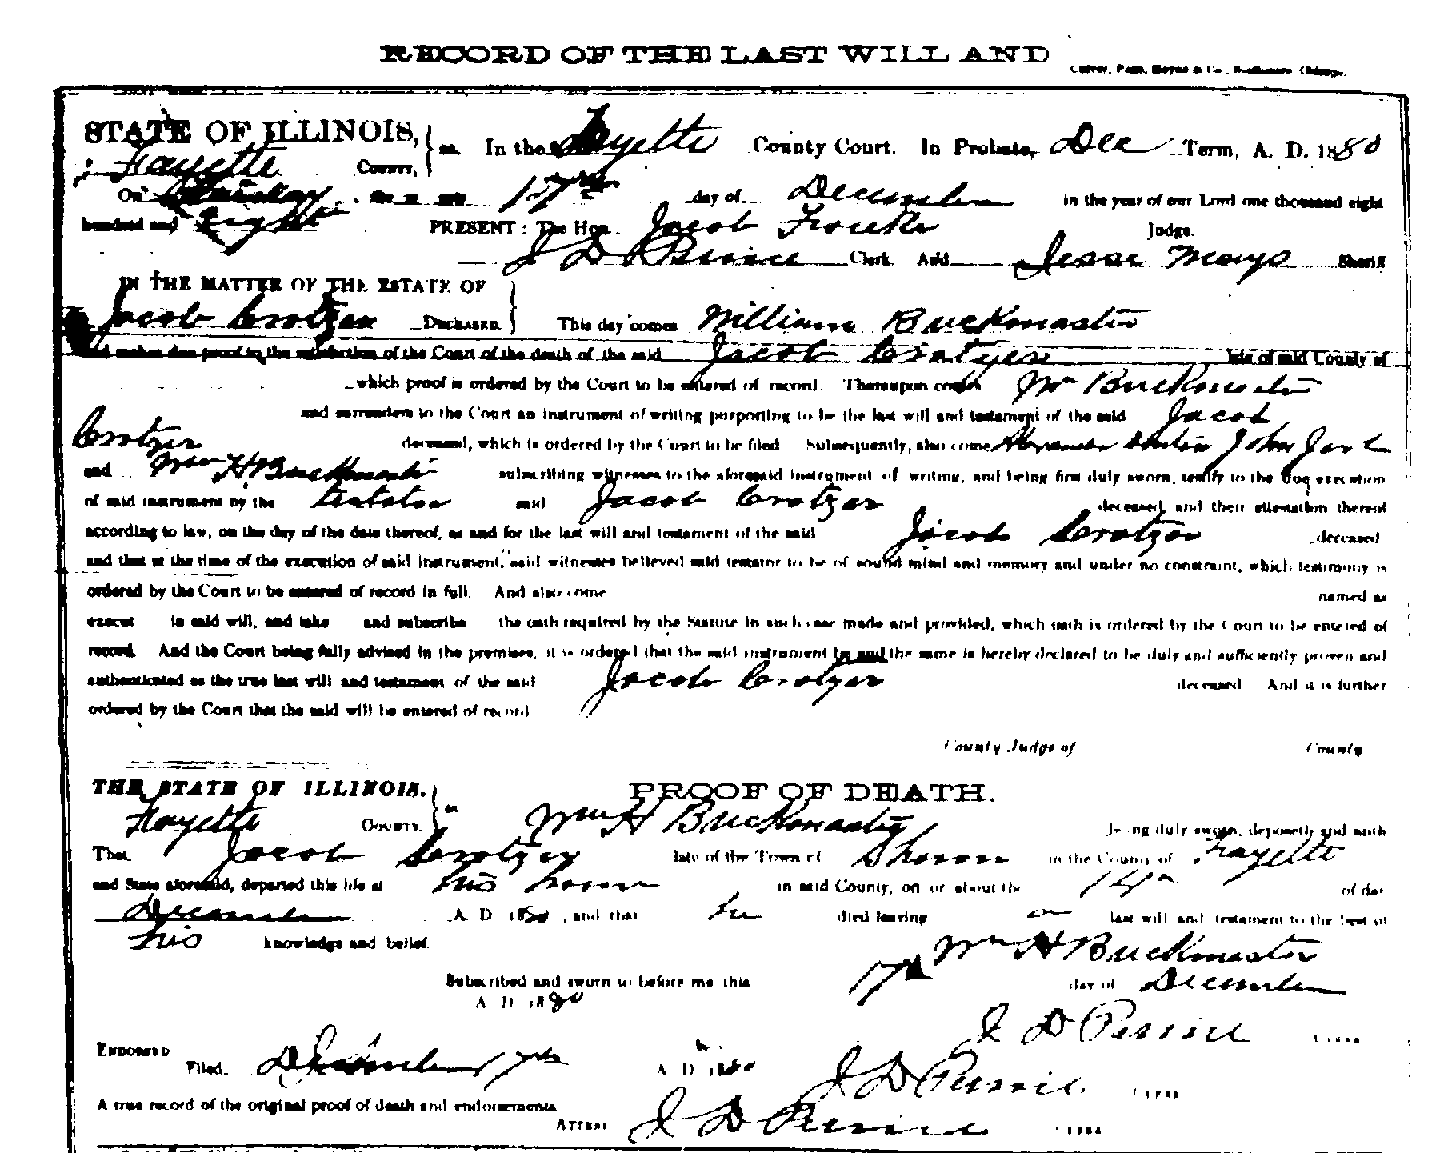 RECORD OF THE LAST WILL AND
Culver, Page, Hoyne & Co., Stationers, Chicago.
STATE OF ILLINOIS, ss. In the Fayette County Court. In Probate, Dec Term, A. D. 1880
Fayette COUNTY,
On 17th day of December in the year of our Lord one thousand eight
hundred and Eighty PRESENT: The Hon. Jacob Fouke Judge.
J D Perine Clerk And Jesse Mays Sheriff
IN THE MATTER OF THE ESTATE OF
Jacob Crotzer DECEASED. This day comes William Buckmaster
and makes due proof to the satisfaction of the Court of the death of the said Jacob Crotzer late of said County of
which proof is ordered by the Court to be entered of record. Thereupon comes Wm Buckmaster
and surrenders to the Court an instrument of writing purporting to be the last will and testament of the said Jacob
Crotzer deceased, which is ordered by the Court to be filed Subsequently, also come Alexander John
and Wm H Buckmaster subscribing witnesses to the aforesaid instrument of writing, and being first duly sworn, testify to the due execution
of said instrument by the testator said Jacob Crotzer deceased, and their attestation thereof
according to law, on the day of the date thereof, as and for the last will and testament of the said Jacob Crotzer deceased
and that at the time of the execution of said instrument, said witnesses believed said testator to be of sound mind and memory and under no constraint, which testimony is
ordered by the Court to be entered of record in full. And also come named as
execut in said will, and take and subscribe the oath required by the Statute in such case made and provided, which oath is ordered by the Court to be entered of
record. And the Court being fully advised in the premises, it is ordered that the said instrument be and the same is hereby declared to be duly and sufficiently proven and
authenticated as the true last will and testament of the said Jacob Crotzer deceased And it is further
ordered by the Court that the said will be entered of record
County Judge of County
THE STATE OF ILLINOIS, ss PROOF OF DEATH.
Fayette COUNTY. Wm H Buckmaster being duly sworn, deposeth and saith
That Jacob Crotzer late of the Town of in the County of Fayette
and State aforesaid, departed this life at his home in said County, on or about the 14th of day
December A. D. 1880, and that he died leaving a last will and testament to the best of
his knowledge and belief.
Wm H Buckmaster
Subscribed and sworn to before me this 17th day of December
A D 1880
J D Perine Clerk
ENDORSED
Filed. December 17th A. D. 1880 J D Perine Clerk
A true record of the original proof of death and endorsements
ATTEST J D Perine Clerk